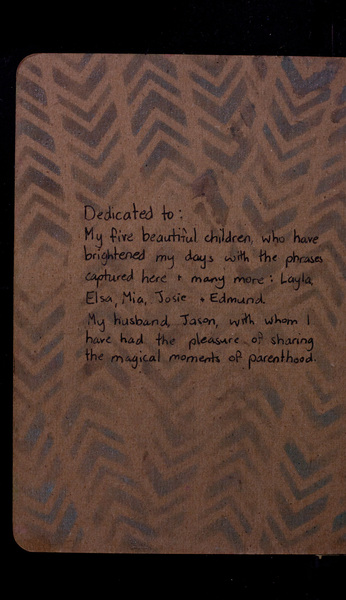 Dedicated to:
My five beautiful children, who have
brightened my days with the phrases
captured here + many more: Layla,
Elsa, Mia, Josie + Edmund.
My husband, Jason, with whom I
have had the pleasure of sharing
the magical moments of parenthood.